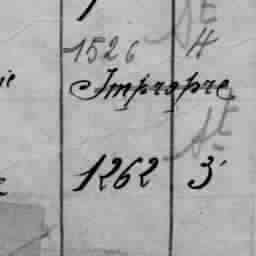 1526 4
ie Impropre
1262 3